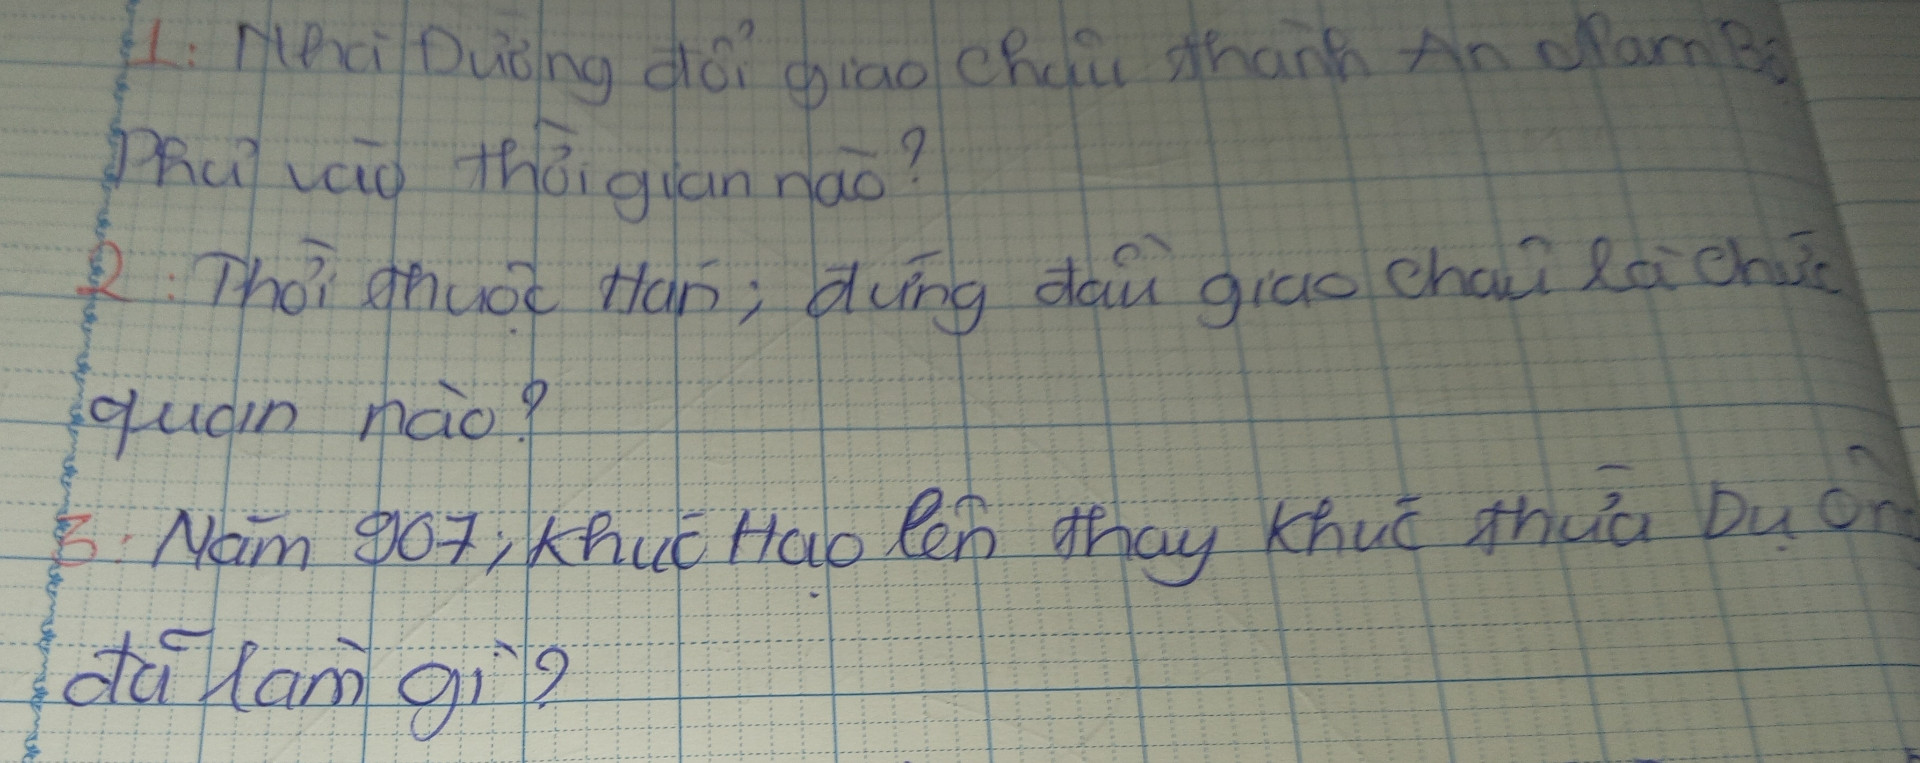 1: Nhà Đường đổi giao Châu thành An Nam Đô
Phủ vào thời gian nào?
2: Thời thuộc Hán; đứng đầu giao châu là chức
quan nào?
3: Năm 907; Khúc Hạo lên thay Khúc thừa Dụ ôn
đã làm gì?